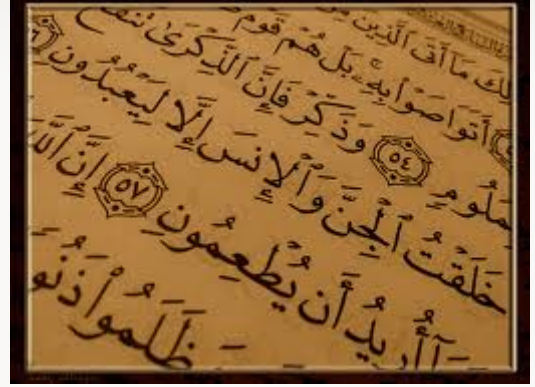 لِكَ مَآ أَتَى ٱلَّذِينَ مِن
أَتَوَاصَوْا۟ بِهِۦ ۚ بَلْ هُمْ قَوْمٌ
مَلُومٍ ﴿٥٤﴾ وَذَكِّرْ فَإِنَّ ٱلذِّكْرَىٰ تَنفَعُ
خَلَقْتُ ٱلْجِنَّ وَٱلْإِنسَ إِلَّا لِيَعْبُدُونِ
أُرِيدُ أَن يُطْعِمُونِ ﴿٥٧﴾ إِنَّ ٱللَّهَ
ظَلَمُوا۟ ذَنُو